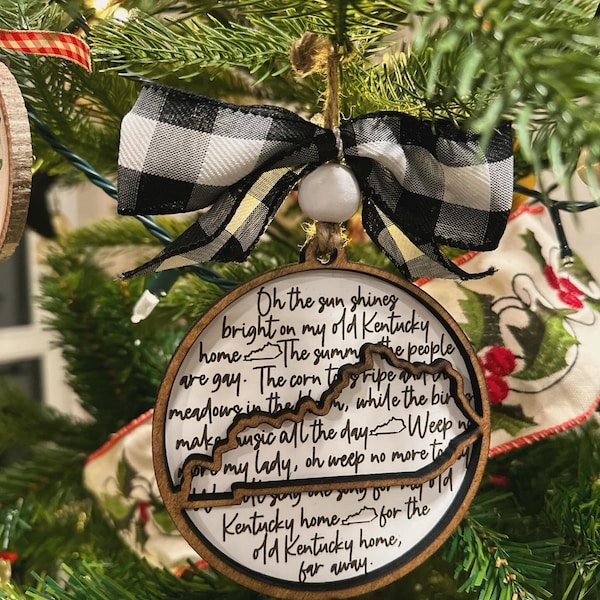 Oh the sun shines
bright on my old Kentucky
home The summ the people
are gay. The corn to ripe and
meadows in the , while the bi
make music all the day Weep n
my lady, oh weep no more to y
song for my old
Kentucky home for the
old Kentucky home,
far away.